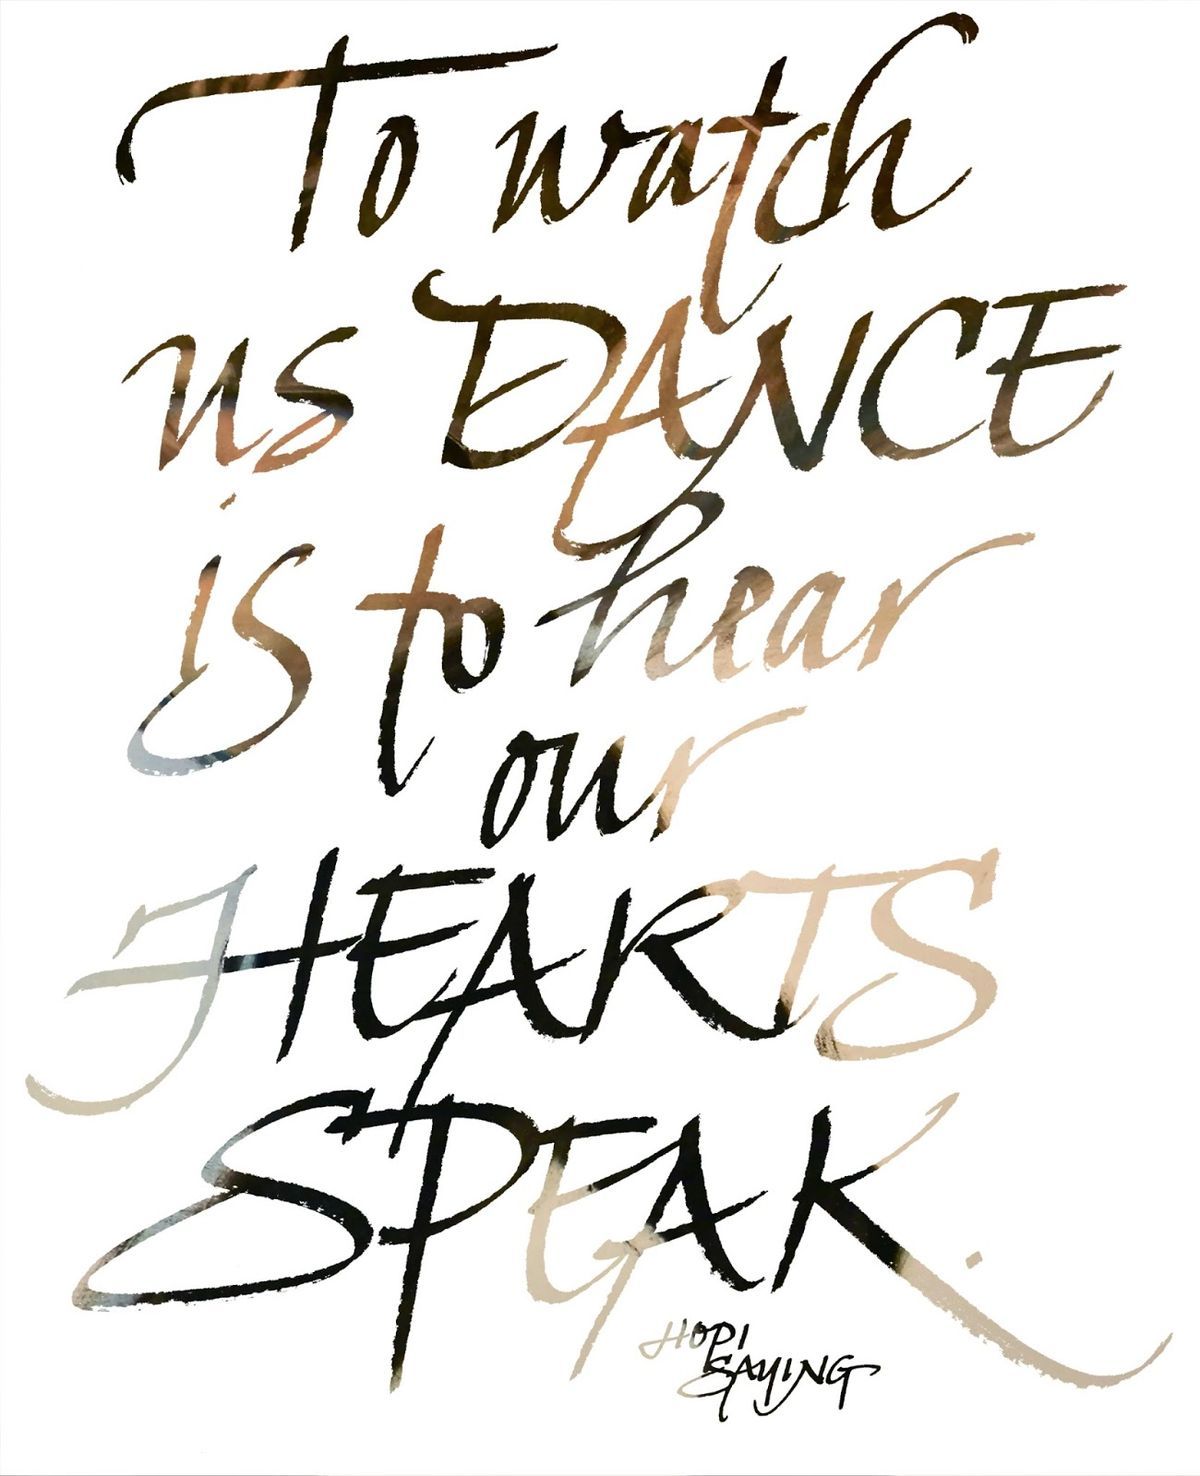 To watch
us DANCE
is to hear
our
HEARTS
SPEAK.
HOPI
SAYING